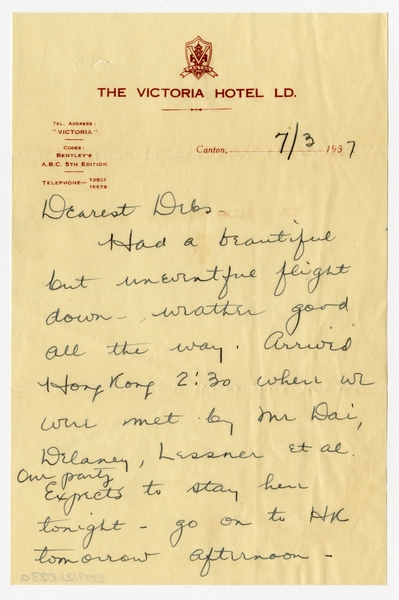 THE VICTORIA HOTEL LD.
TEL. ADDRESS:
"VICTORIA"
CODES:
BENTLEY'S
A.B.C. 5TH EDITION
TELEPHONE— 13501
16679
Canton, 7/3 1937
Dearest Debs -
Had a beautiful
but uneventful flight
down - weather good
all the way. Arrived
Hong Kong 2:30 where we
were met by Mr Dai,
Delaney, Lessner et al.
Our party
Expects to stay here
tonight - go on to HK
tomorrow afternoon -